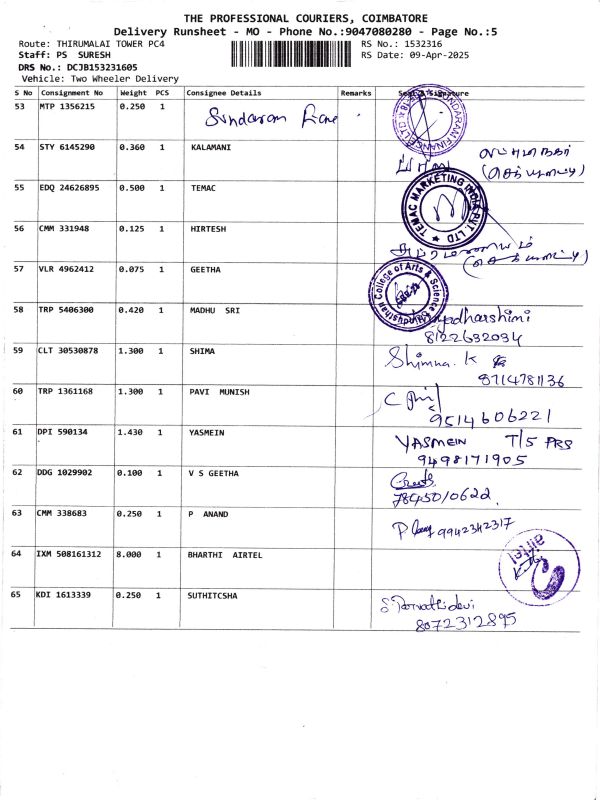 THE PROFESSIONAL COURIERS, COIMBATORE
Delivery Runsheet - MO - Phone No.:9047080280 - Page No.:5
Route: THIRUMALAI TOWER PC4 RS No.: 1532316
Staff: PS SURESH RS Date: 09-Apr-2025
DRS No.: DCJB153231605
Vehicle: Two Wheeler Delivery
S No Consignment No Weight PCS Consignee Details Remarks
53 MTP 1356215 0.250 1 Sundaram
54 STY 6145290 0.360 1 KALAMANI
55 EDQ 24626895 0.500 1 TEMAC
TEMAC MARKETING INDIA PVT. LTD
56 CMM 331948 0.125 1 HIRTESH
57 VLR 4962412 0.075 1 GEETHA
College of Arts & Science
58 TRP 5406300 0.420 1 MADHU SRI
8122632034
59 CLT 30530878 1.300 1 SHIMA Shimna. K
8714781136
60 TRP 1361168 1.300 1 PAVI MUNISH
9514606221
61 DPI 590134 1.430 1 YASMEIN YASMEIN T/5 PRS
9498171905
62 DDG 1029902 0.100 1 V S GEETHA
7845010622
63 CMM 338683 0.250 1 P ANAND 9942342317
64 IXM 508161312 8.000 1 BHARTHI AIRTEL airtel
65 KDI 1613339 0.250 1 SUTHITCSHA
8072312895